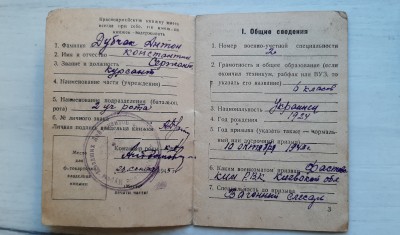 Красноармейскую книжку иметь
всегда при себе. Не имеющих
книжек — задерживать.
1. Фамилия Дубчак Антон
2. Имя и отчество Константин
3. Звание и должность Сержант
курсант
4. Наименование части (учреждения)
5. Наименование подразделения (батальон,
рота) 2 уч. рота
6. № личного знака
Личная подпись владельца книжки
Место
для
фотокарточки
владельца
книжки
Командир роты
I. Общие сведения
1. Номер военно-учетной специальности
2. Грамотность и общее образование (если
окончил техникум, рабфак или ВУЗ, то
указать его название)
6 класс
3. Национальность Украинец
4. Год рождения 1924
5. Год призыва (указать также — нормаль-
ный или досрочный призыв)
10 октября
6. Каким военкоматом призван Фастов
ким РВК Киевской обл
7. Специальность до призыва
Вагонный слесарь
3